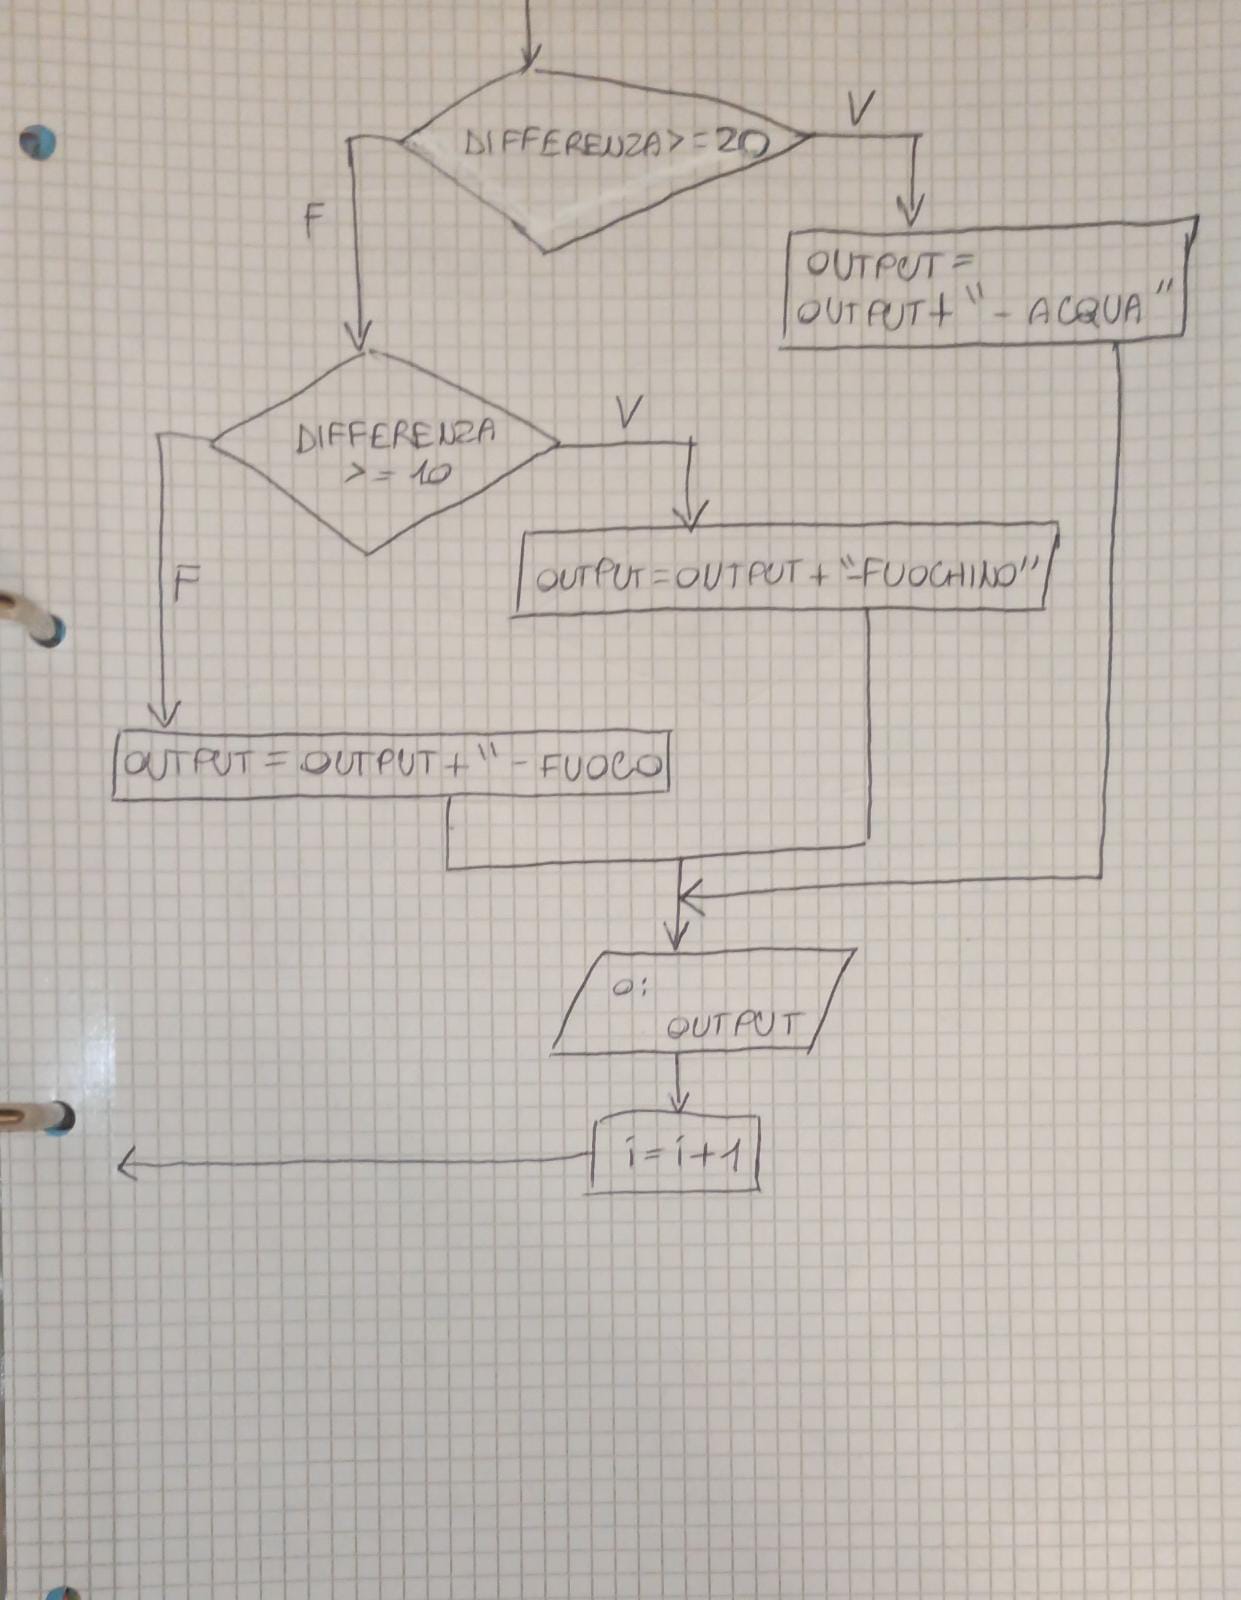 V
DIFFERENZA>=20
F
OUTPUT=
OUTPUT+"- ACQUA"
V
DIFFERENZA
>=10
F
OUTPUT=OUTPUT+"-FUOCHINO"
OUTPUT=OUTPUT+"-FUOCO
O:
OUTPUT
i=i+1